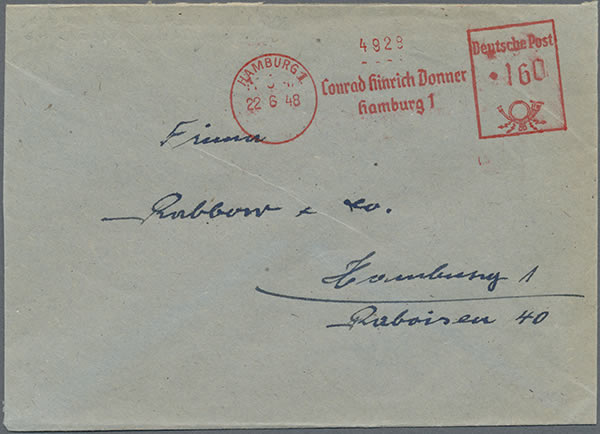 4929
HAMBURG 1
22.6.48
Conrad Hinrich Donner
Hamburg 1
Deutsche Post
160
Firma
Rabbow & Co.
Hamburg 1
Raboisen 40